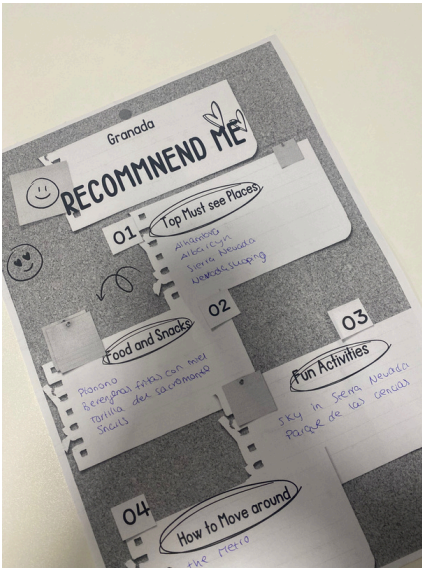 Granada
RECOMMNEND ME
01
Top Must see Places
Alhambra
Albaicyn
Sierra Nevada
Nevada Shoping
02
Food and Snacks
Pionono
Berengenas fritas con miel
Tortilla del sacromonte
Snails
03
Fun Activities
Sky in Sierra Nevada
Parque de las ciencias
04
How to Move around
the Metro